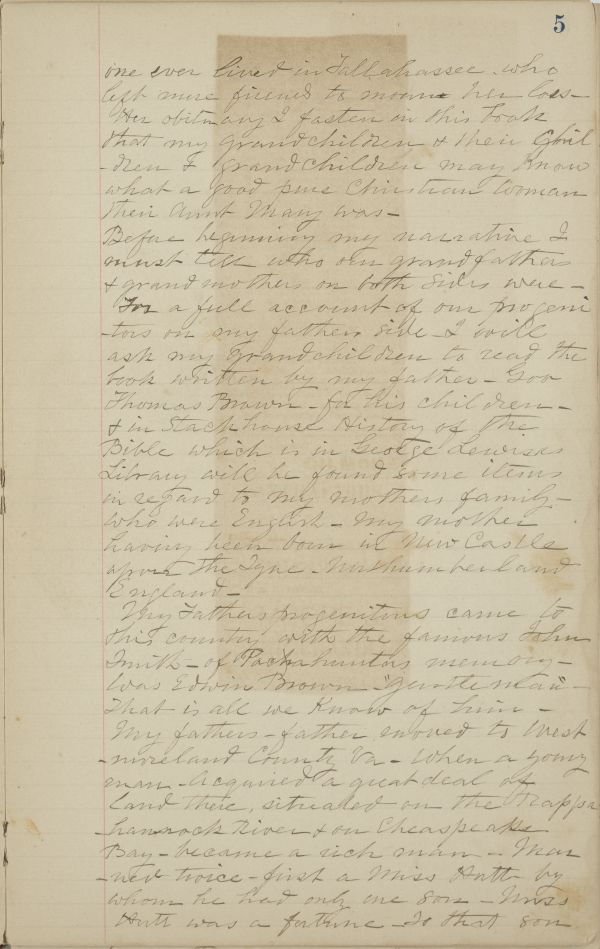 5
one ever lived in Tallahassee. who
left more friends to mourn her loss-
Her obituary I fasten in this book
that my grandchildren & their Chil
-dren & grandchildren may Know
what a good pure Christian Woman
their Aunt Mary was-
Before beginning my narrative I
must tell who our grandfathers
& grandmothers on both sides were-
For a full account of our progeni
-tors on my fathers side - I will
ask my grandchildren to read the
book written by my father - Gov
Thomas Brown - for his children -
& in Stackhouse History of the
Bible which is in George Lewises
Library will be found some items
in regard to my mothers family -
who were English - My mother
having been born in New Castle
upon the Tyne - Northumberland
England -
My Fathers progenitors came to
this country with the famous John
Smith - of Pochahuntas memory -
was Edwin Brown - "gentleman" -
That is all we Know of him -
My fathers - father moved to West
-moreland County Va - When a young
man - Acquired a great deal of
land there, situated on the Rappa
-hannock River & on Cheaspeake
Bay - became a rich man - Mar
-ried twice - first a Miss Hutt by
whom he had only one son - Miss
Hutt was a fortune - To that son